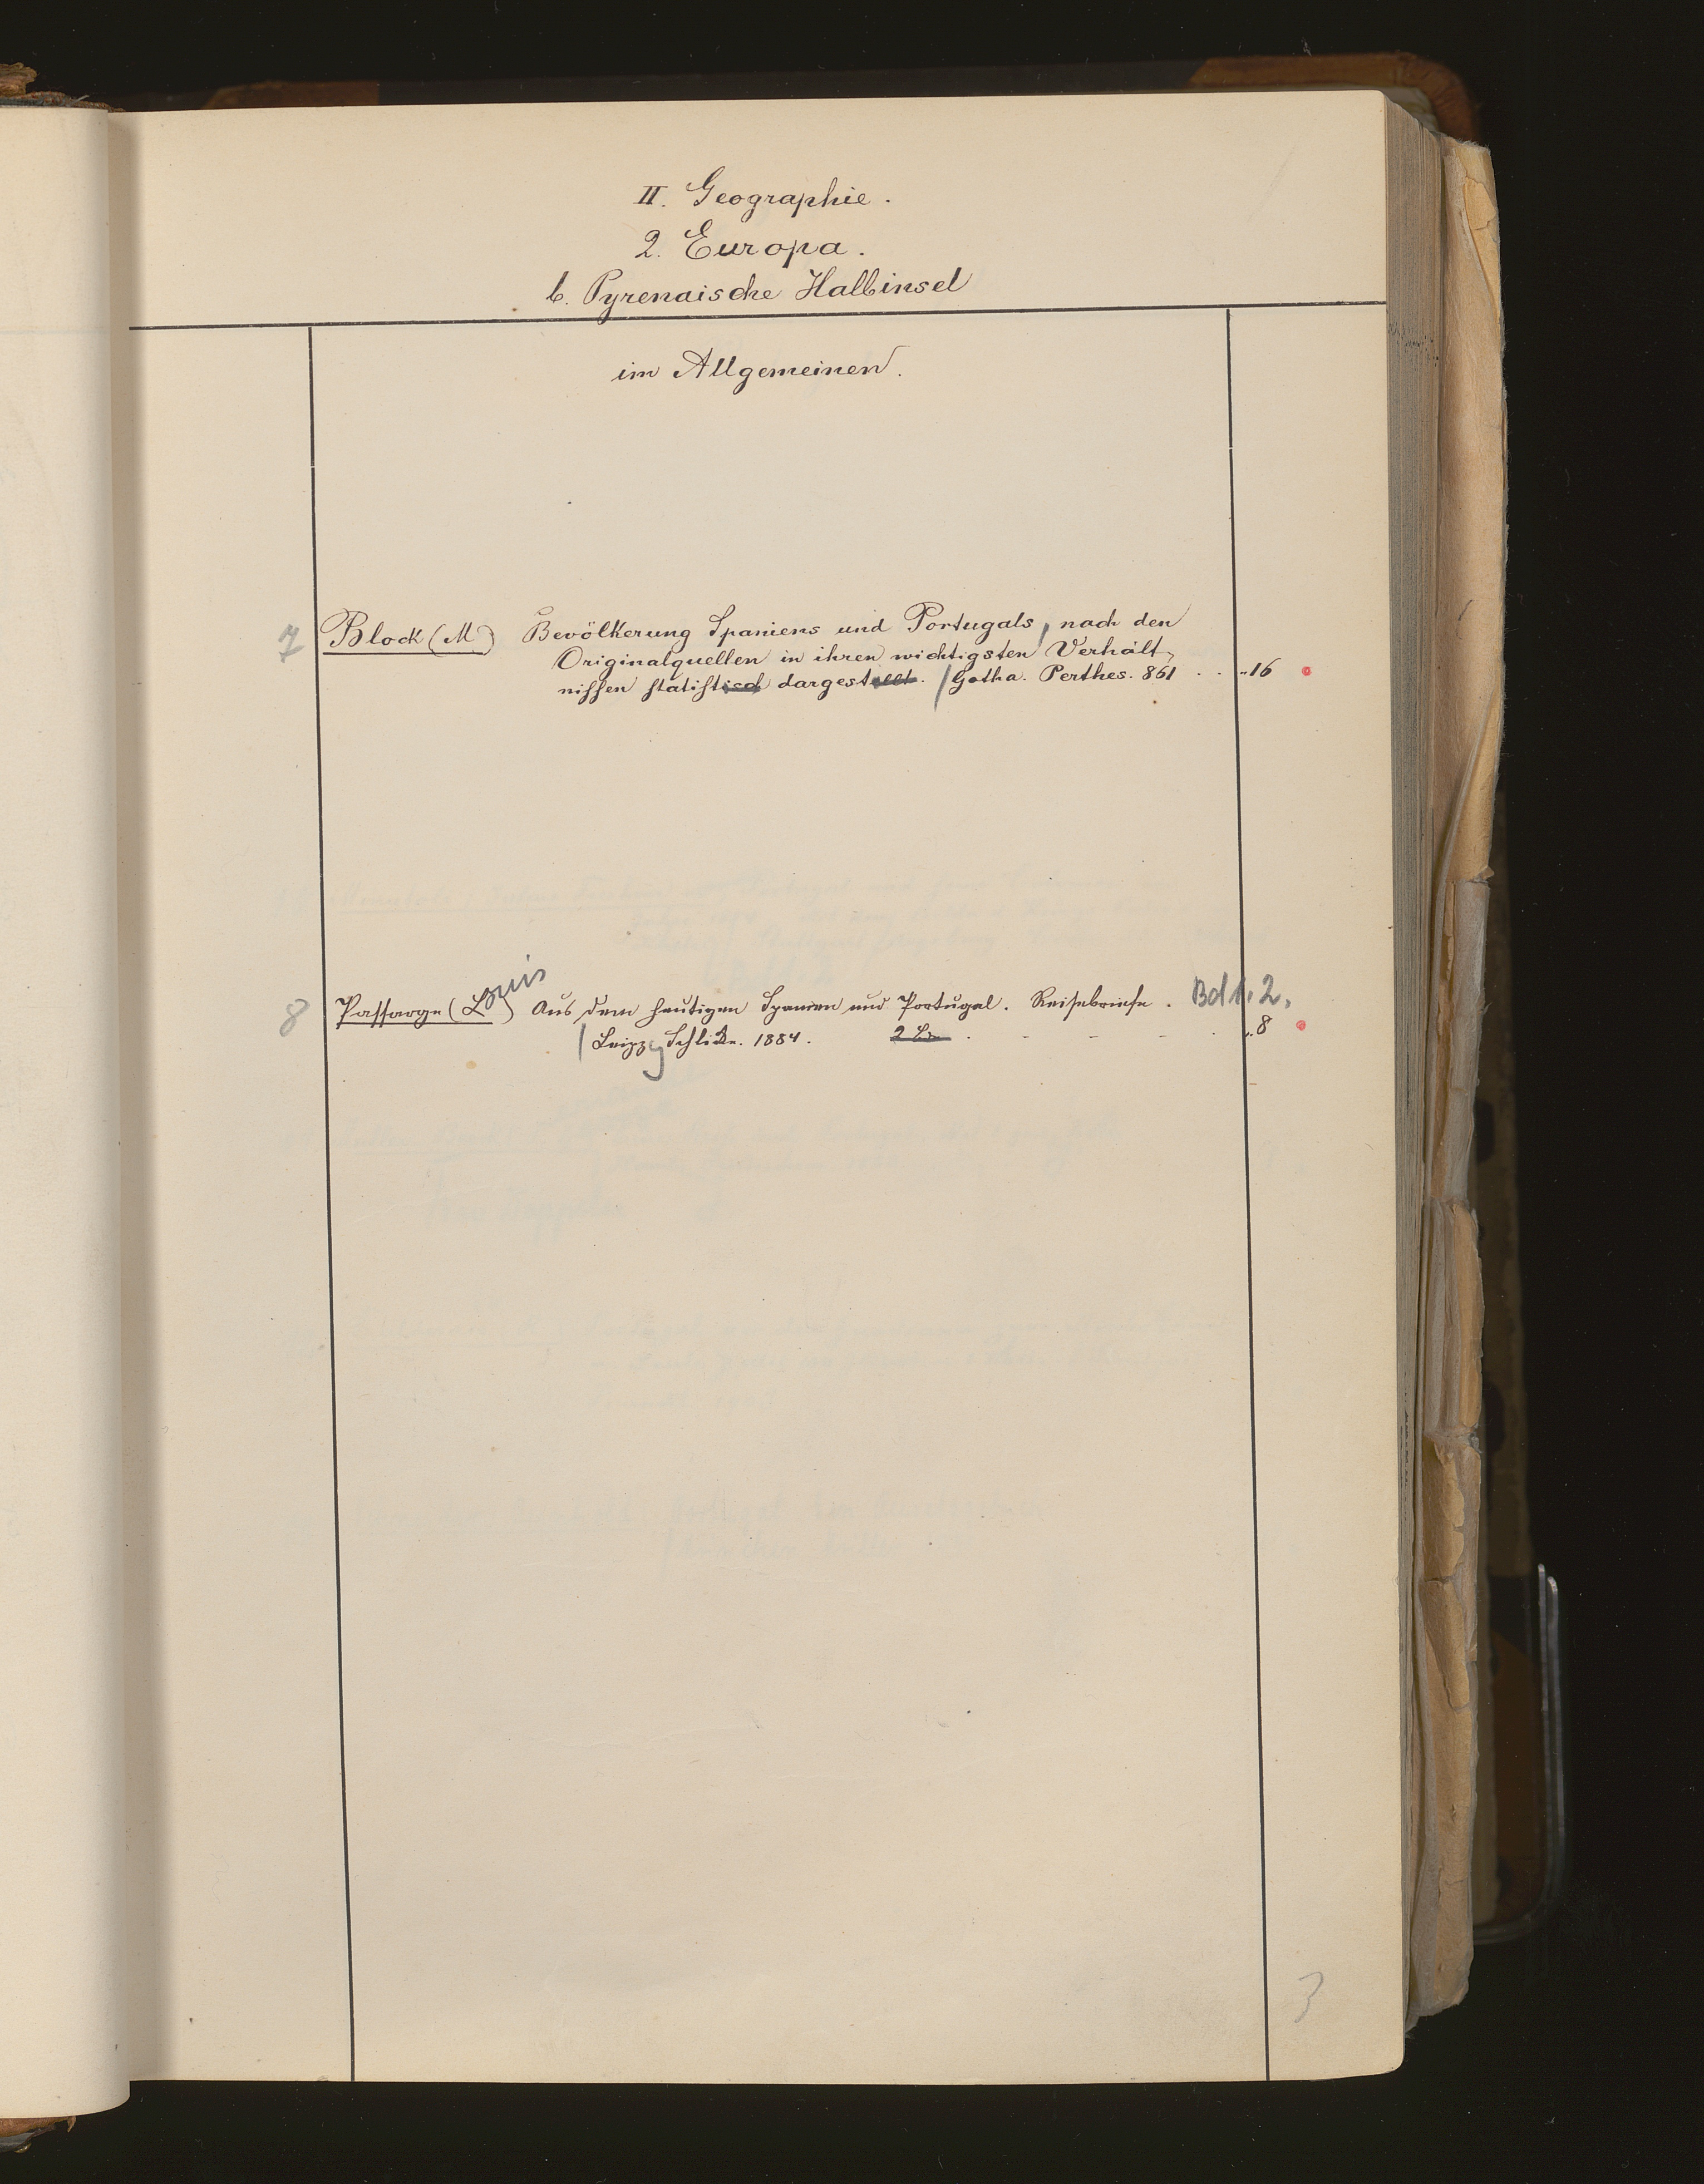 II. Geographie.
2. Europa.
b. Pyrenaische Halbinsel
im Allgemeinen.
7 Block (M.) Bevölkerung Spaniens und Portugals, nach den
Originalquellen in ihren wichtigsten Verhält-
nissen statistisch dargestellt. / Gotha. Perthes. 861 . . „16
8 Passarge (Louis) Aus dem heutigen Spanien und Portugal. Reisebriefe. Bd 1. 2.
/ Leipzg Schlicke. 1884. 2 Bde . - - - . „8
3